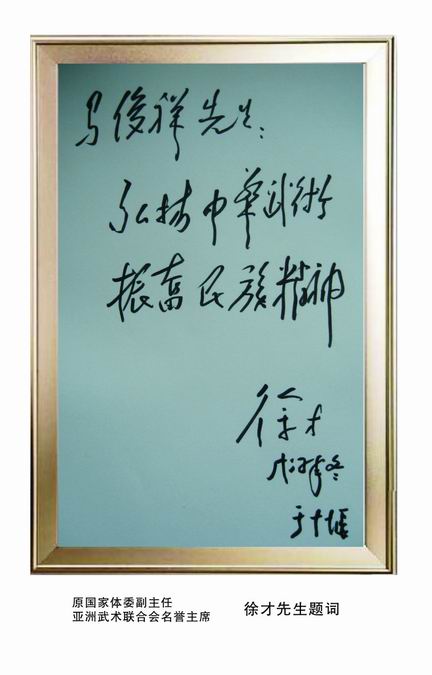 马俊祥先生：
弘扬中華武術
振奮民族精神
徐才
冬
于十堰
原国家体委副主任
亚洲武术联合会名誉主席
徐才先生题词